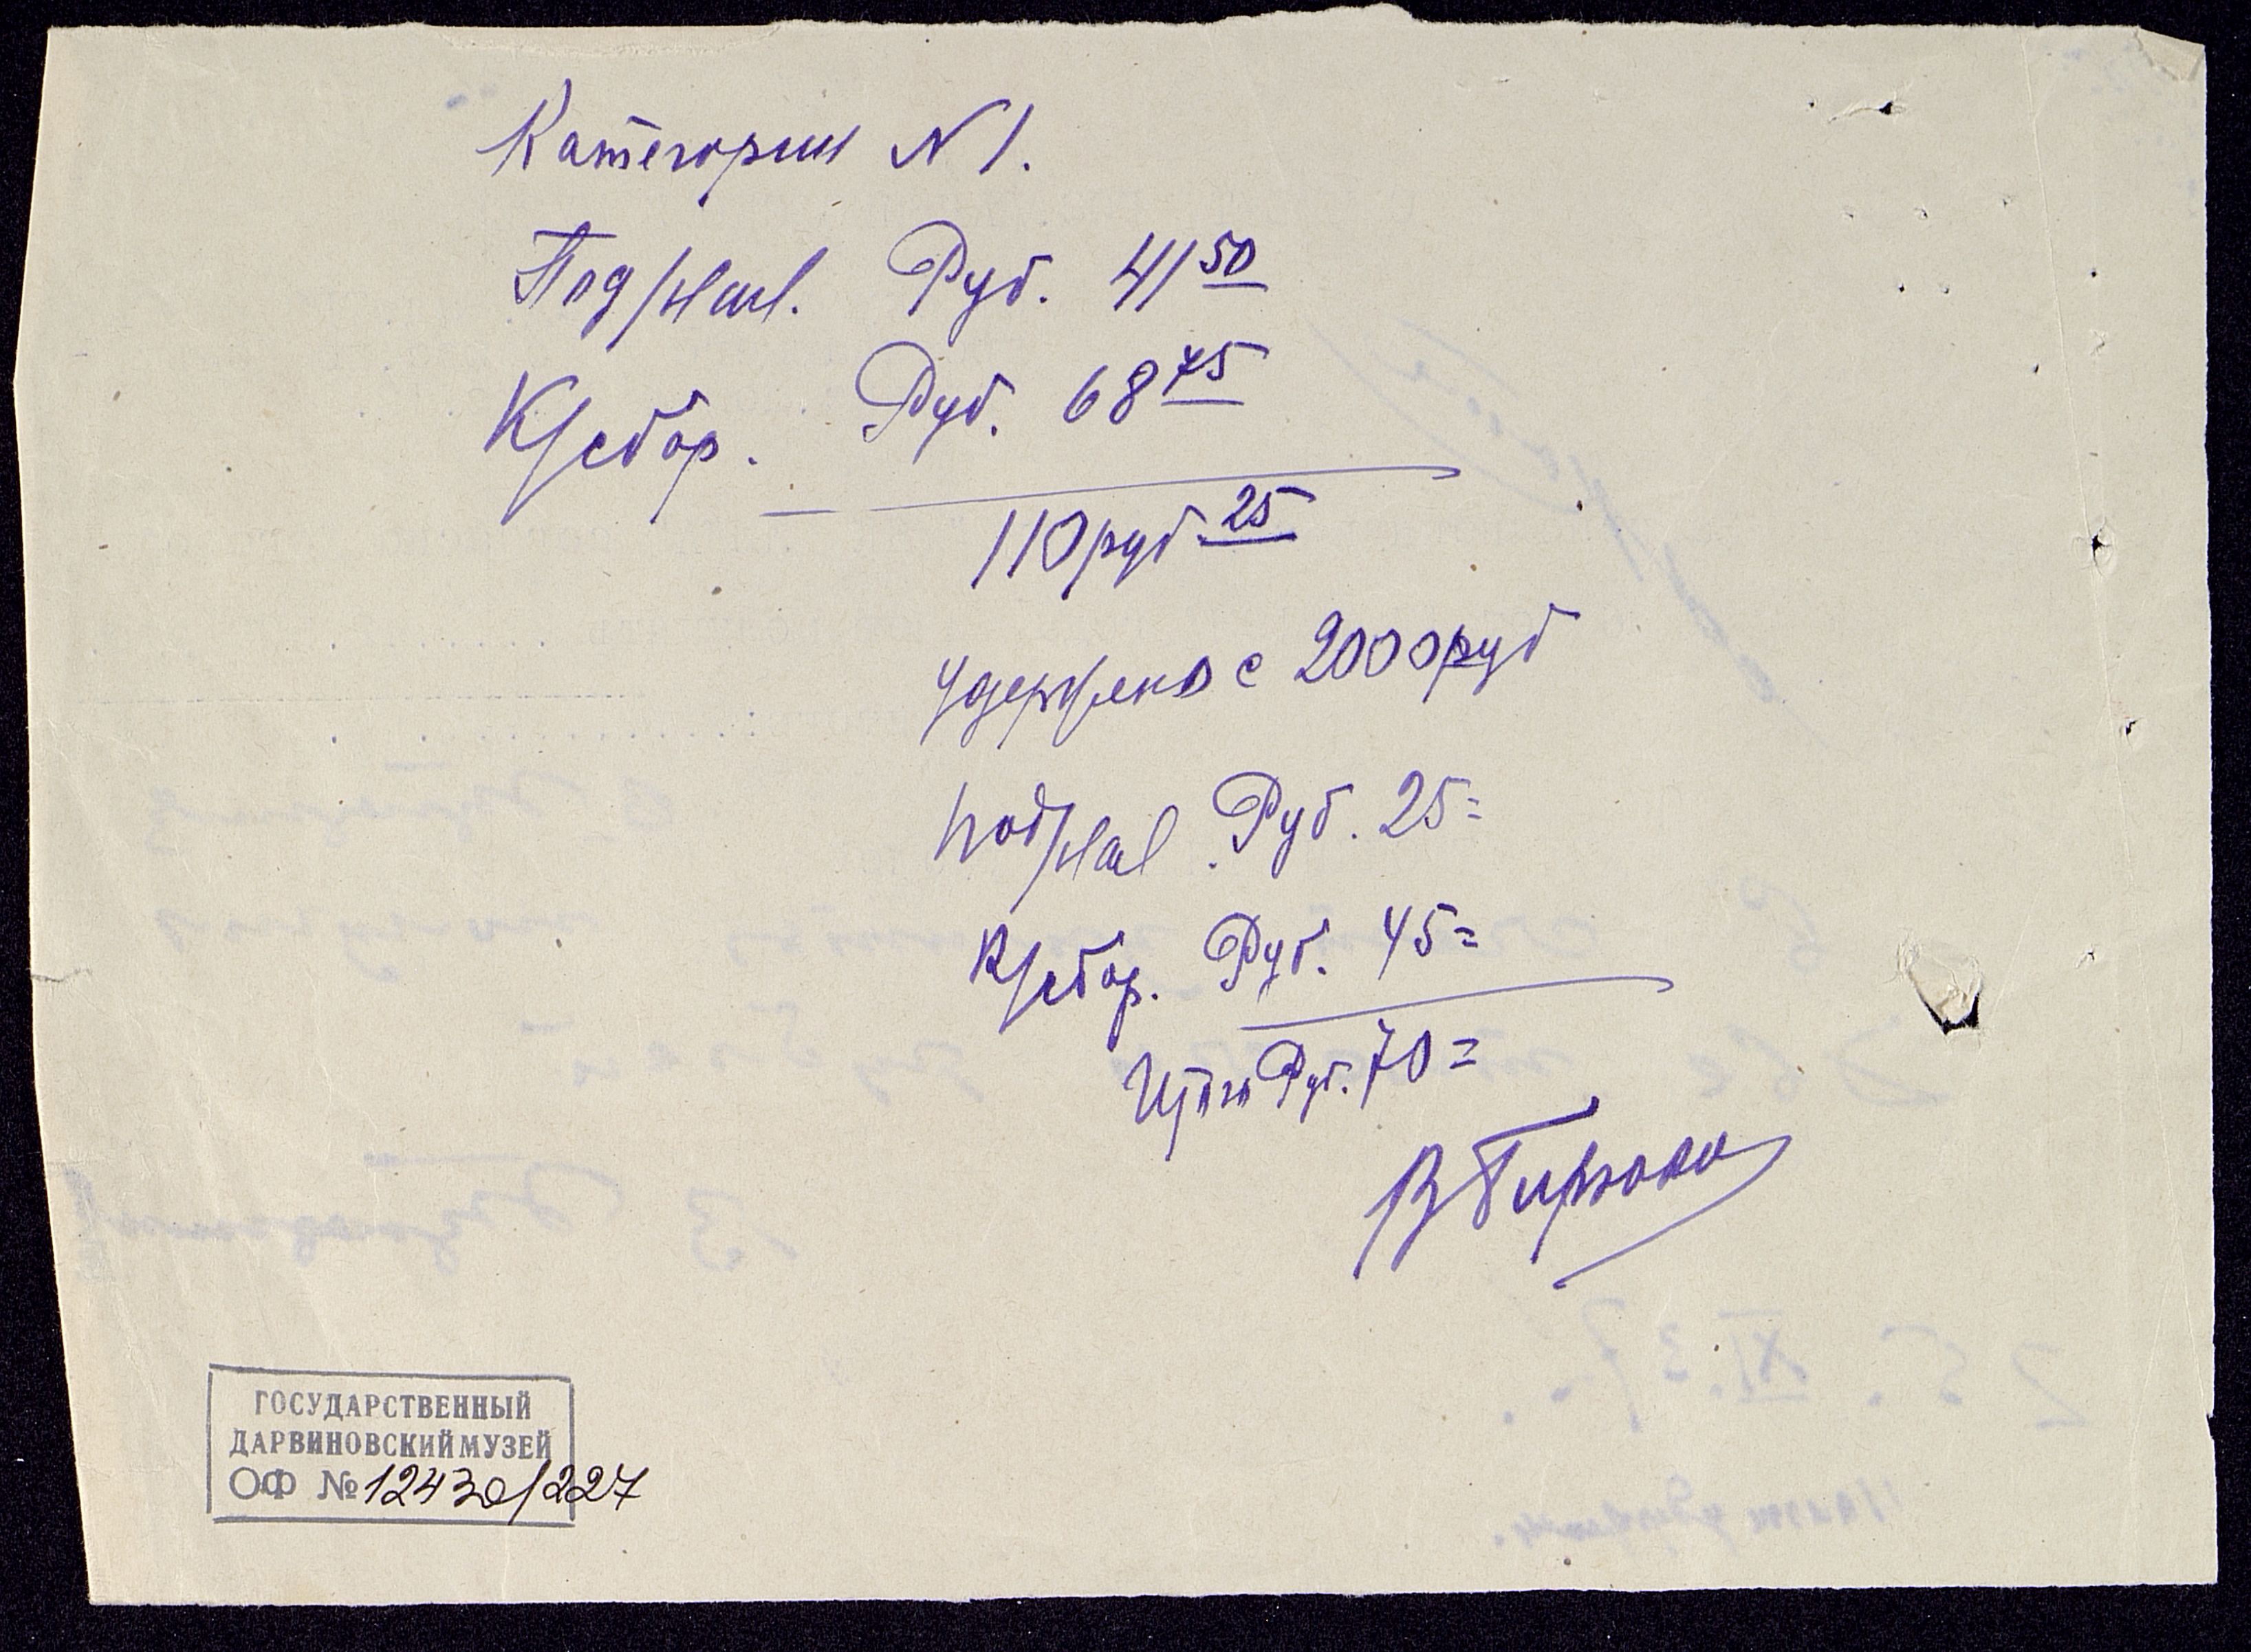 Категории N 1.
Под/нал. Руб. 41 50
К/сбор. Руб. 68 75
110 руб. 25
Удержано с 2000 руб
под/нал. Руб. 25=
К/сбор. Руб. 45=
Итого Руб. 70=
ГОСУДАРСТВЕННЫЙ
ДАРВИНОВСКИЙ МУЗЕЙ
ОФ № 12430/227